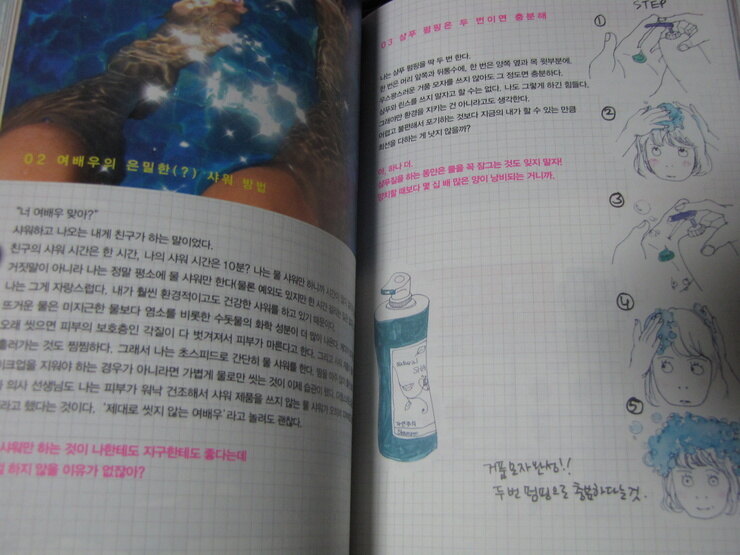 02 여배우의 은밀한(?) 샤워 방법
"너 여배우 맞아?"
샤워하고 나오는 내게 친구가 하는 말이었다.
친구의 샤워 시간은 한 시간, 나의 샤워 시간은 10분? 나는 물 샤워만 하니까
거짓말이 아니라 나는 정말 평소에 물 샤워만 한다(물론 예외도 있지만 한 시간
나는 그게 자랑스럽다. 내가 훨씬 환경적이고도 건강한 샤워를 하고 있기 때문이다.
뜨거운 물은 미지근한 물보다 염소를 비롯한 수돗물의 화학 성분이 더 많이
오래 씻으면 피부의 보호층인 각질이 다 벗겨져서 피부가 마른다고 한다. 그리고
흘러가는 것도 찜찜하다. 그래서 나는 초스피드로 간단히 물 샤워를 한다.
이크업을 지워야 하는 경우가 아니라면 가볍게 물로만 씻는 것이 이제 습관이 됐다.
의사 선생님도 나는 피부가 워낙 건조해서 샤워 제품을 쓰지 않는 물 샤워가
라고 했다는 것이다. '제대로 씻지 않는 여배우'라고 놀려도 괜찮다.
샤워만 하는 것이 나한테도 지구한테도 좋다는데
하지 않을 이유가 없잖아?
03 샴푸 펌핑은 두 번이면 충분해
나는 샴푸 펌핑을 딱 두 번 한다.
한 번은 머리 앞쪽과 뒤통수에, 한 번은 양쪽 옆과 목 윗부분에.
우스꽝스러운 거품 모자를 쓰지 않아도 그 정도면 충분하다.
샴푸와 린스를 쓰지 말자고 할 수는 없다. 나도 그렇게 하긴 힘들다.
그래야만 환경을 지키는 건 아니라고도 생각한다.
어렵고 불편해서 포기하는 것보다 지금의 내가 할 수 있는 만큼
최선을 다하는 게 낫지 않을까?
아, 하나 더.
샴푸질을 하는 동안은 물을 꼭 잠그는 것도 잊지 말자!
양치할 때보다 몇 십 배 많은 양이 낭비되는 거니까.
STEP
①
②
③
④
⑤
natural
자연주의
Shampoo
거품모자 완성!!
두번 펌핑으로 충분하다는 것.